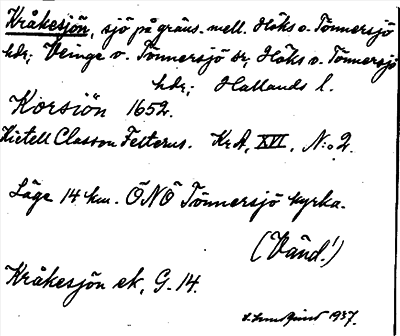 Kråkesjön, sjö på gräns. mell. Höks o. Tönnersjö
hdr; Veinge o. Tönnersjö sr, Höks o. Tönnersjö
hdr; Hallands l.
Korsiön 1652.
Kietell Classon Felterus. KrA, XVI, N:o 2.
Läge 14 km. ÖNÖ Tönnersjö kyrka.
(Vänd!)
Kråkesjön ek, G. 14.
1937.